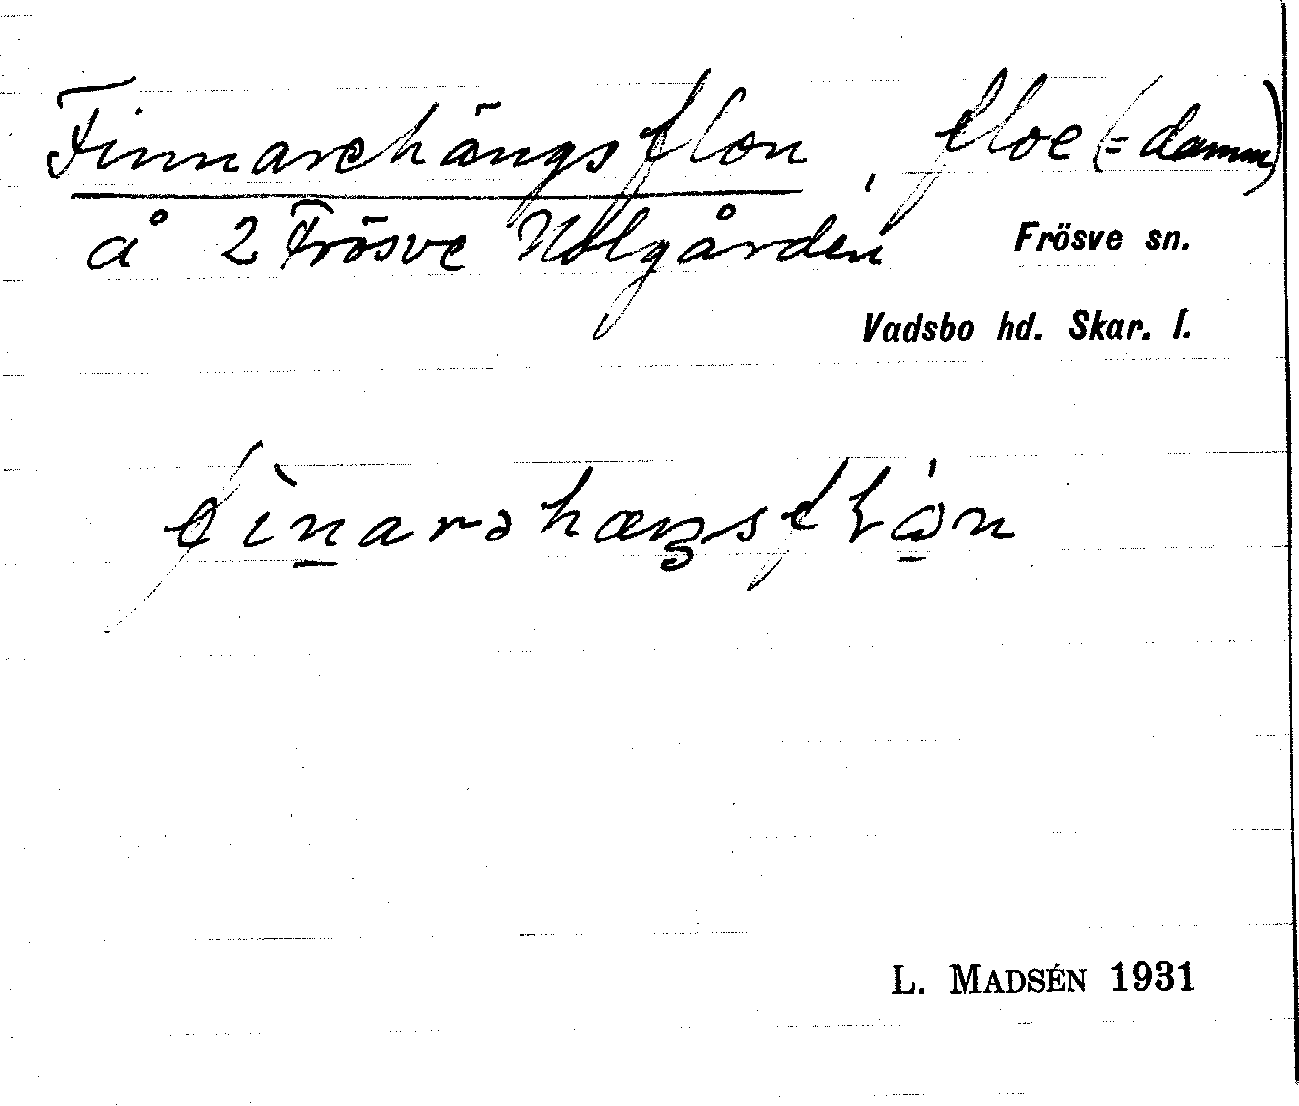 Finnarehängsflon, floe (= damm)
å 2 Frösve Nolgården Frösve sn.
Vadsbo hd. Skar. l.
fìnarəhæŋsflón
L. MADSÉN 1931